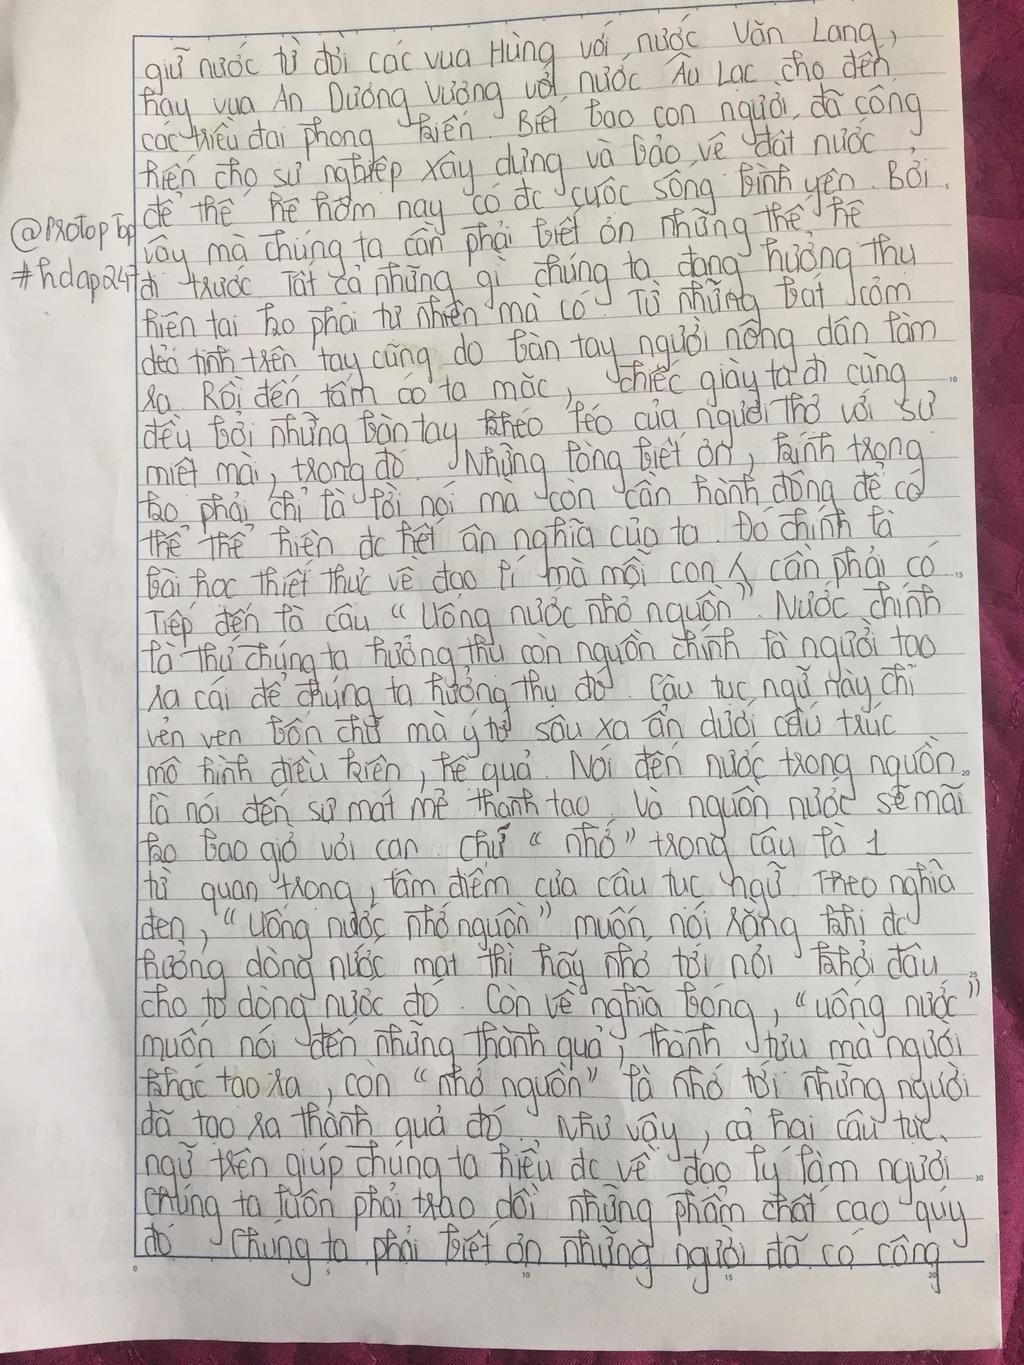 giữ nước từ đời các vua Hùng với nước Văn Lang,
hay vua An Dương Vương với nước Âu Lạc cho đến
các triều đại phong kiến. Biết bao con người đã cống
hiến cho sự nghiệp xây dựng và bảo vệ đất nước,
để thế hệ hôm nay có đc cuộc sống bình yên. Bởi
@Protoptp
vậy mà chúng ta cần phải biết ơn những thế hệ
#hdap247
đi trước. Tất cả những gì chúng ta đang hưởng thụ
hiện tại ko phải tự nhiên mà có. Từ những bát cơm
dẻo tinh trên tay cũng do bàn tay người nông dân làm
ra. Rồi đến tấm áo ta mặc, chiếc giày ta đi cũng
10
đều bởi những bàn tay khéo léo của người thợ với sự
miệt mài, trong đó. Những lòng biết ơn, kính trọng
ko phải chỉ là lời nói mà còn cần hành động để có
thể thể hiện đc hết ân nghĩa của ta. Đó chính là
bài học thiết thực về đạo lí mà mỗi con cần phải có.
15
Tiếp đến là câu "Uống nước nhớ nguồn". Nước chính
là thứ chúng ta hưởng thụ còn nguồn chính là người tạo
ra cái để chúng ta hưởng thụ đó. Câu tục ngữ này chỉ
vẻn vẹn bốn chữ mà ý tứ sâu xa ẩn dưới cấu trúc
mô hình điều kiện, hệ quả. Nói đến nước trong nguồn
20
là nói đến sự mát mẻ thanh tao. Và nguồn nước sẽ mãi
ko bao giờ vơi cạn. Chữ "nhớ" trong câu là 1
từ quan trọng, tâm điểm của câu tục ngữ. Theo nghĩa
đen, "Uống nước nhớ nguồn" muốn nói rằng khi đc
hưởng dòng nước mát thì hãy nhớ tới nơi khởi đầu
25
cho ta dòng nước đó. Còn về nghĩa bóng, "uống nước"
muốn nói đến những thành quả, thành tựu mà người
khác tạo ra, còn "nhớ nguồn" là nhớ tới những người
đã tạo ra thành quả đó. Như vậy, cả hai câu tục
ngữ trên giúp chúng ta hiểu đc về đạo lý làm người
30
Chúng ta luôn phải trao dồi những phẩm chất cao quý
đó. Chúng ta phải biết ơn những người đã có công
0 5 10 15 20